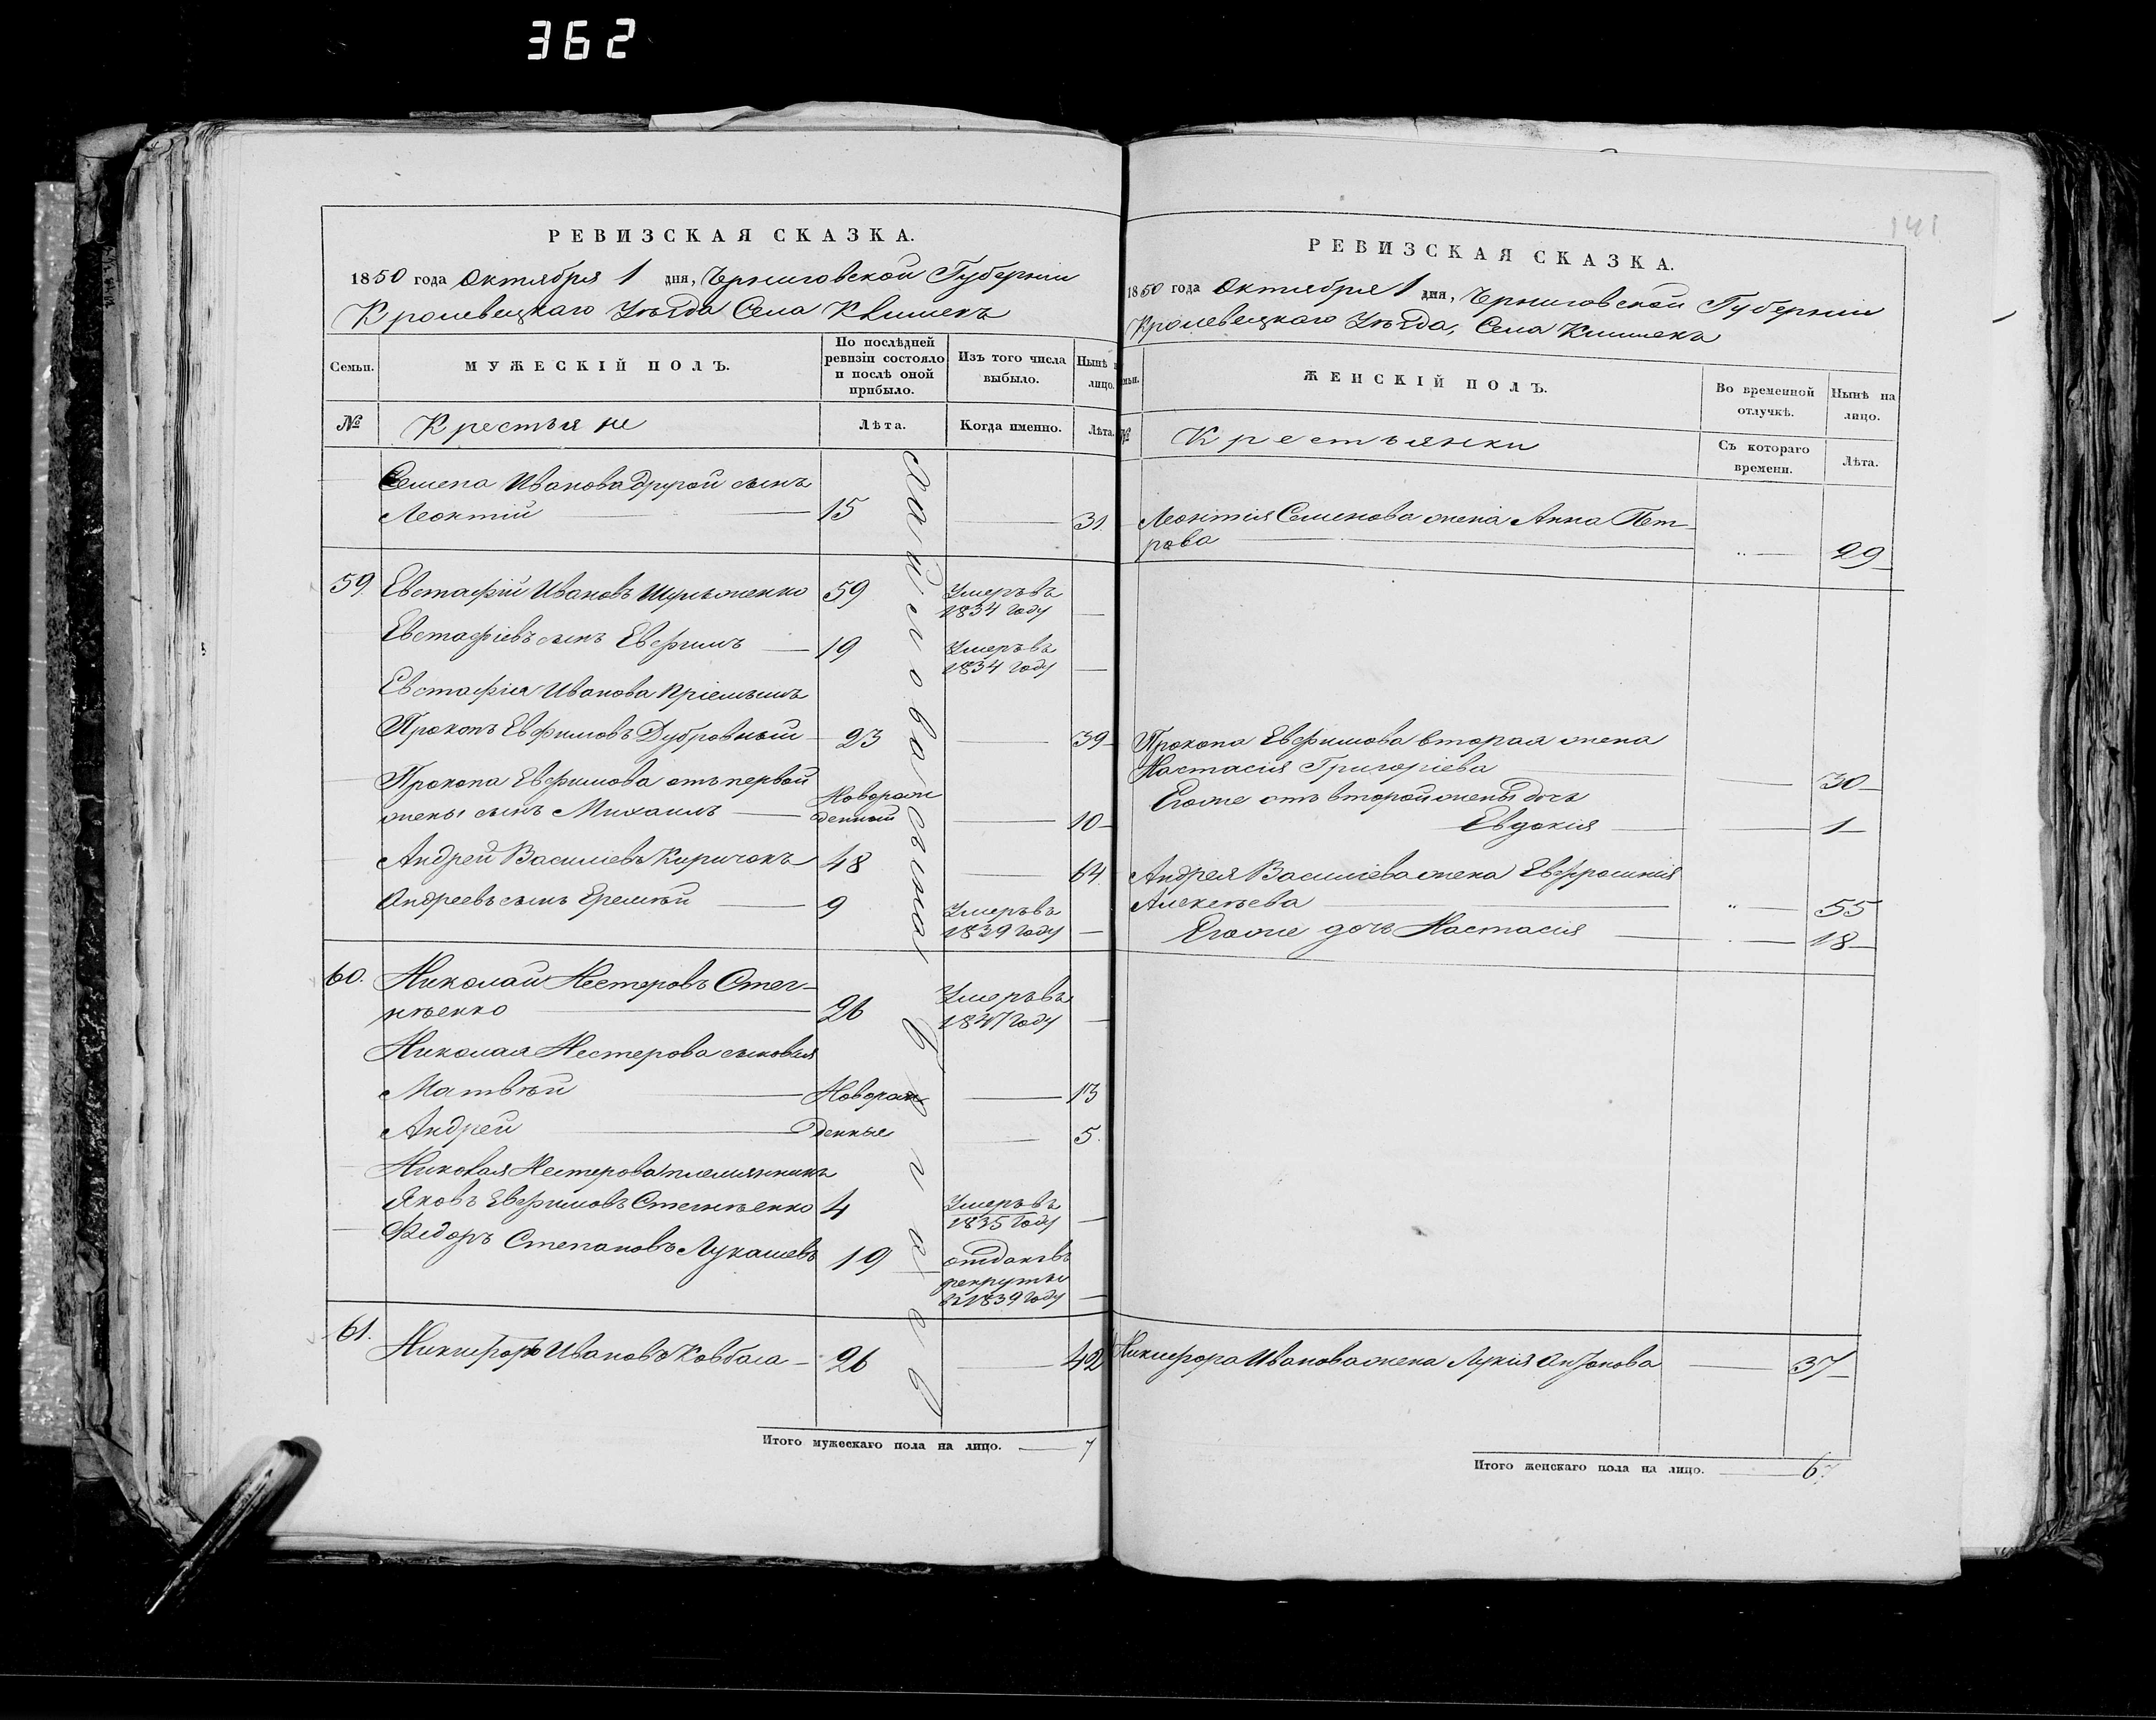 362
141
РЕВИЗСКАЯ СКАЗКА.
1850 года Октября 1 дня, Черниговской Губерніи
Кролевецкаго Уѣзда Села Клишекъ
Семьи.
МУЖЕСКІЙ ПОЛЪ.
По послѣдней ревизіи состояло и послѣ оной прибыло.
Изъ того числа выбыло.
Нынѣ на лицо.
№
Крестьяне
Лѣта.
Когда именно.
Лѣта.
Семена Иванова другой сынъ
Леонтій 15 31.
59. Евстафій Ивановъ 59 Умеръ въ
1834 году
Евстафіевъ сынъ Евфимъ 19 Умеръ въ
1834 году
Евстафія Иванова пріемышъ
Прокопъ Евфимовъ Дубровный 23 39
Прокопа Евфимова отъ первой
жены сынъ Михаилъ Новорож
денный 10
Андрей Василіевъ Киричокъ 48 64.
Андреевъ сынъ Еремѣй 9 Умеръ въ
1839 году
60. Николай Нестеровъ Стег-
нѣенко 26 Умеръ въ
1847 году
Николая Нестерова сыновья
Матвѣй Новорож 13
Андрей денные 5.
Николая Нестерова племянникъ
Яковъ Евфимовъ Стегнѣенко 4 Умеръ въ
1835 году
Федоръ Степановъ Лукашевъ 19 отданъ въ
рекруты
въ 1839 году
61. Никифоръ Ивановъ Ковбаса 26 42
Итого мужескаго пола на лицо. 7
РЕВИЗСКАЯ СКАЗКА.
1850 года Октября 1 дня, Черниговской Губерніи
Кролевецкаго Уѣзда, Села Клишекъ
ЖЕНСКІЙ ПОЛЪ.
Во временной отлучкѣ.
Нынѣ на лицо.
№
Крестьянки
Съ котораго времени.
Лѣта.
Леонтія Семенова жена Анна Пет-
рова 29
Прокопа Евфимова вторая жена
Настасія Григоріева 30
Егоже отъ второй жены дочь
Евдокія 1
Андрея Василіева жена Евфросинія
Алексѣева 55
Егоже дочь Настасія 18
Никифора Иванова жена Лукія 37
Итого женскаго пола на лицо. 6.